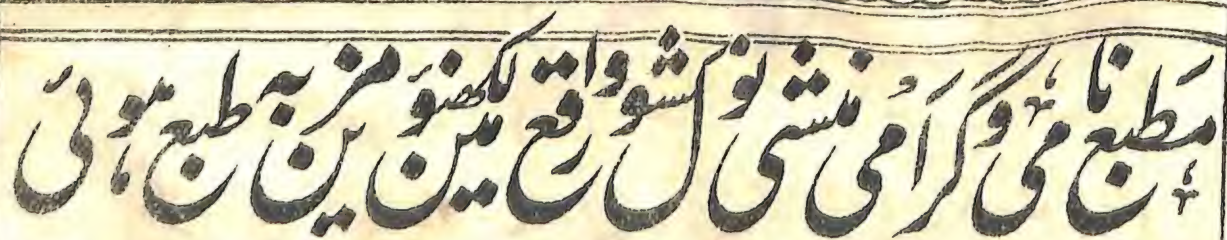 مطبع نامی و گرامی منشی نولکشور واقع لکھنؤ مین مزین بہ طبع ہوئی